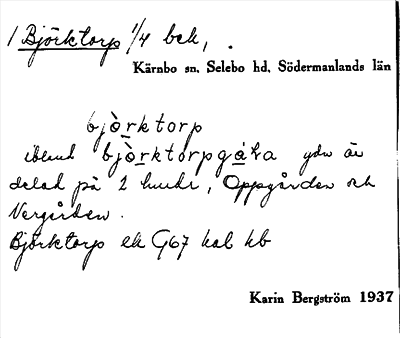 1 Björktorp 1/4 bek,
Kärnbo sn. Selebo hd. Södermanlands län
bjòrktorp
ibland bjòrktorpgáka gdn är
delad på 2 bruk, Oppgården och
Nergården.
Björktorp ek G67 kal kb
Karin Bergström 1937